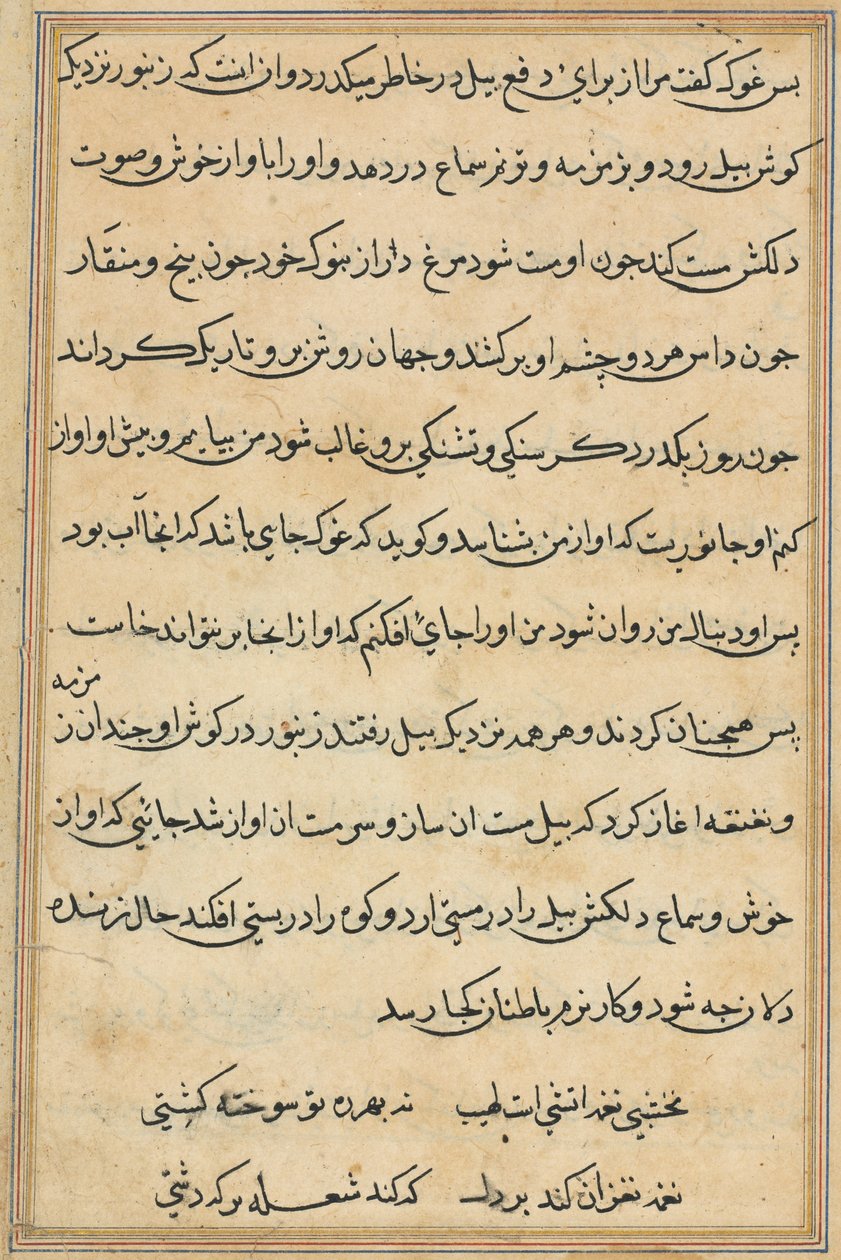 بس غوک کفت مرا از برای دفع بیل در خاطر میکدرد وان اینت که زنبور نزدیک
کوش بیل رود و بزمزمه و ترنم سماع در دهد و او را باواز خوش وصوت
دلکش مست کند جون او مست شود مرغ دراز بنوک خود جون بیخ و منقار
جون داس هر دو چشم او برکشد و جهان روشن برو تاریک کرداند
جون روز بکدرد کرسنکی و تشنکی برو غالب شود من بیایم و بیش او اواز
کنم او جانوریست که اواز من بشناسد و کوید که غوک جایی باشد که انجا آب بود
پس او دنبال من روان شود من او را جایی افکنم که او از انجا بر نتواند خاست
پس همجنان کردند و هر همه نزدیک بیل رفتند زنبور در کوش او جندان ز
مزمه
و نغنغه اغاز کرد که بیل مست ان ساز و سرمست ان اواز شد جائیی که اواز
خوش و سماع دلکش بیل را در مستی ارد و کوه را در بستی افکند حال زنده
دلان جه شود و کار نرم باطنان کجا رسد
نخشبی نغمه اتشی است لهیب نه بهرزه تو سوخته کشتی
نغمه نغز ان کند بر دل که کند شعله بر که دشتی